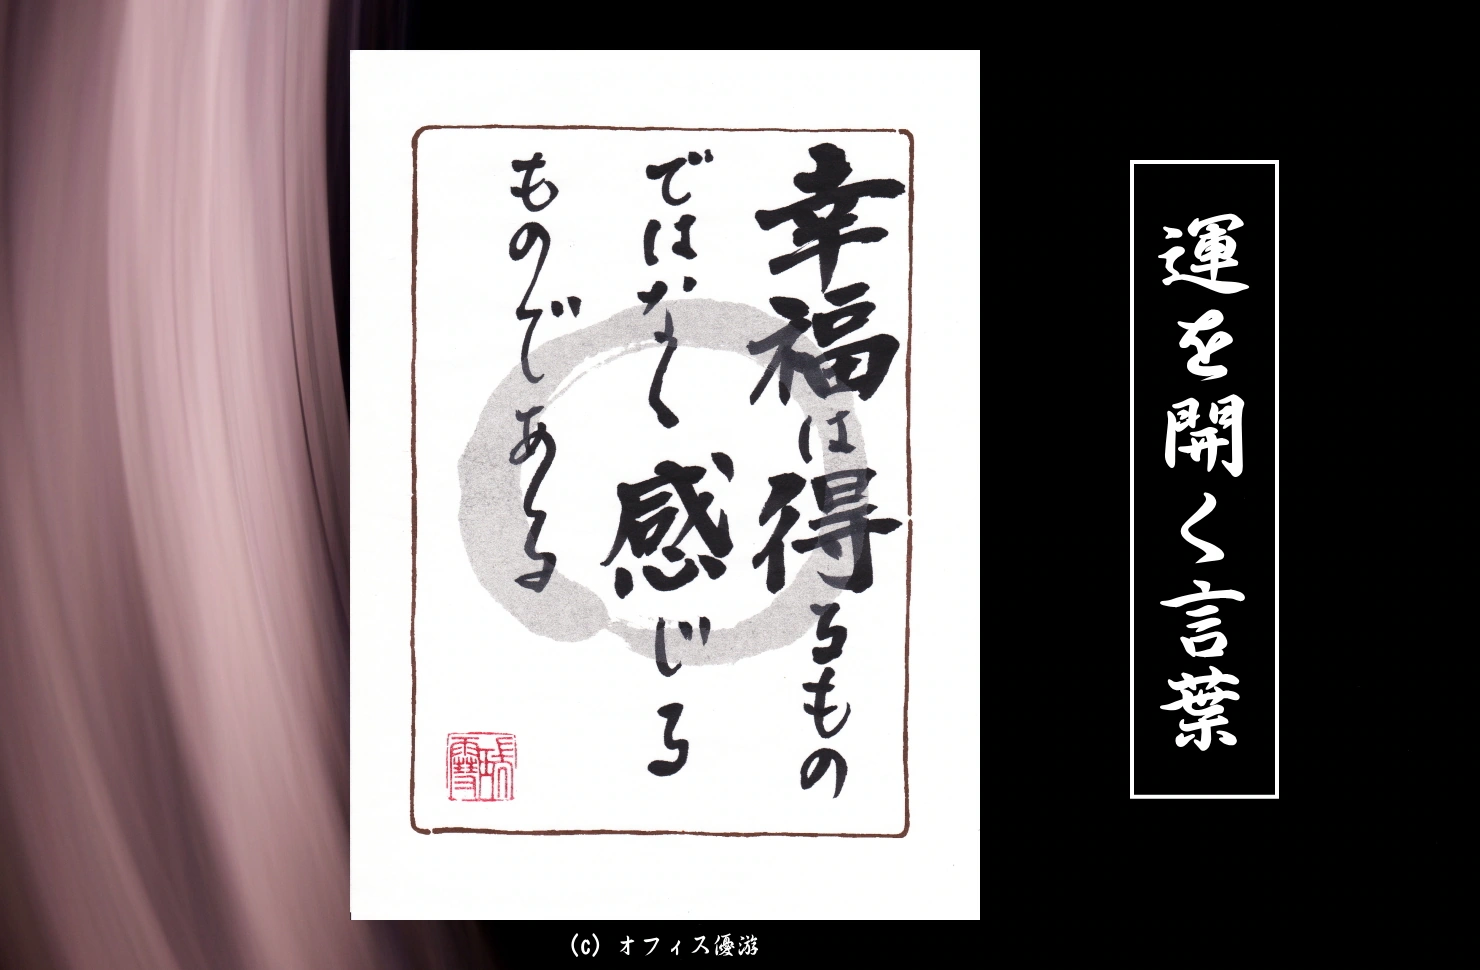 運を開く言葉
幸福は得るもの
ではなく感じる
ものである
(c) オフィス優游